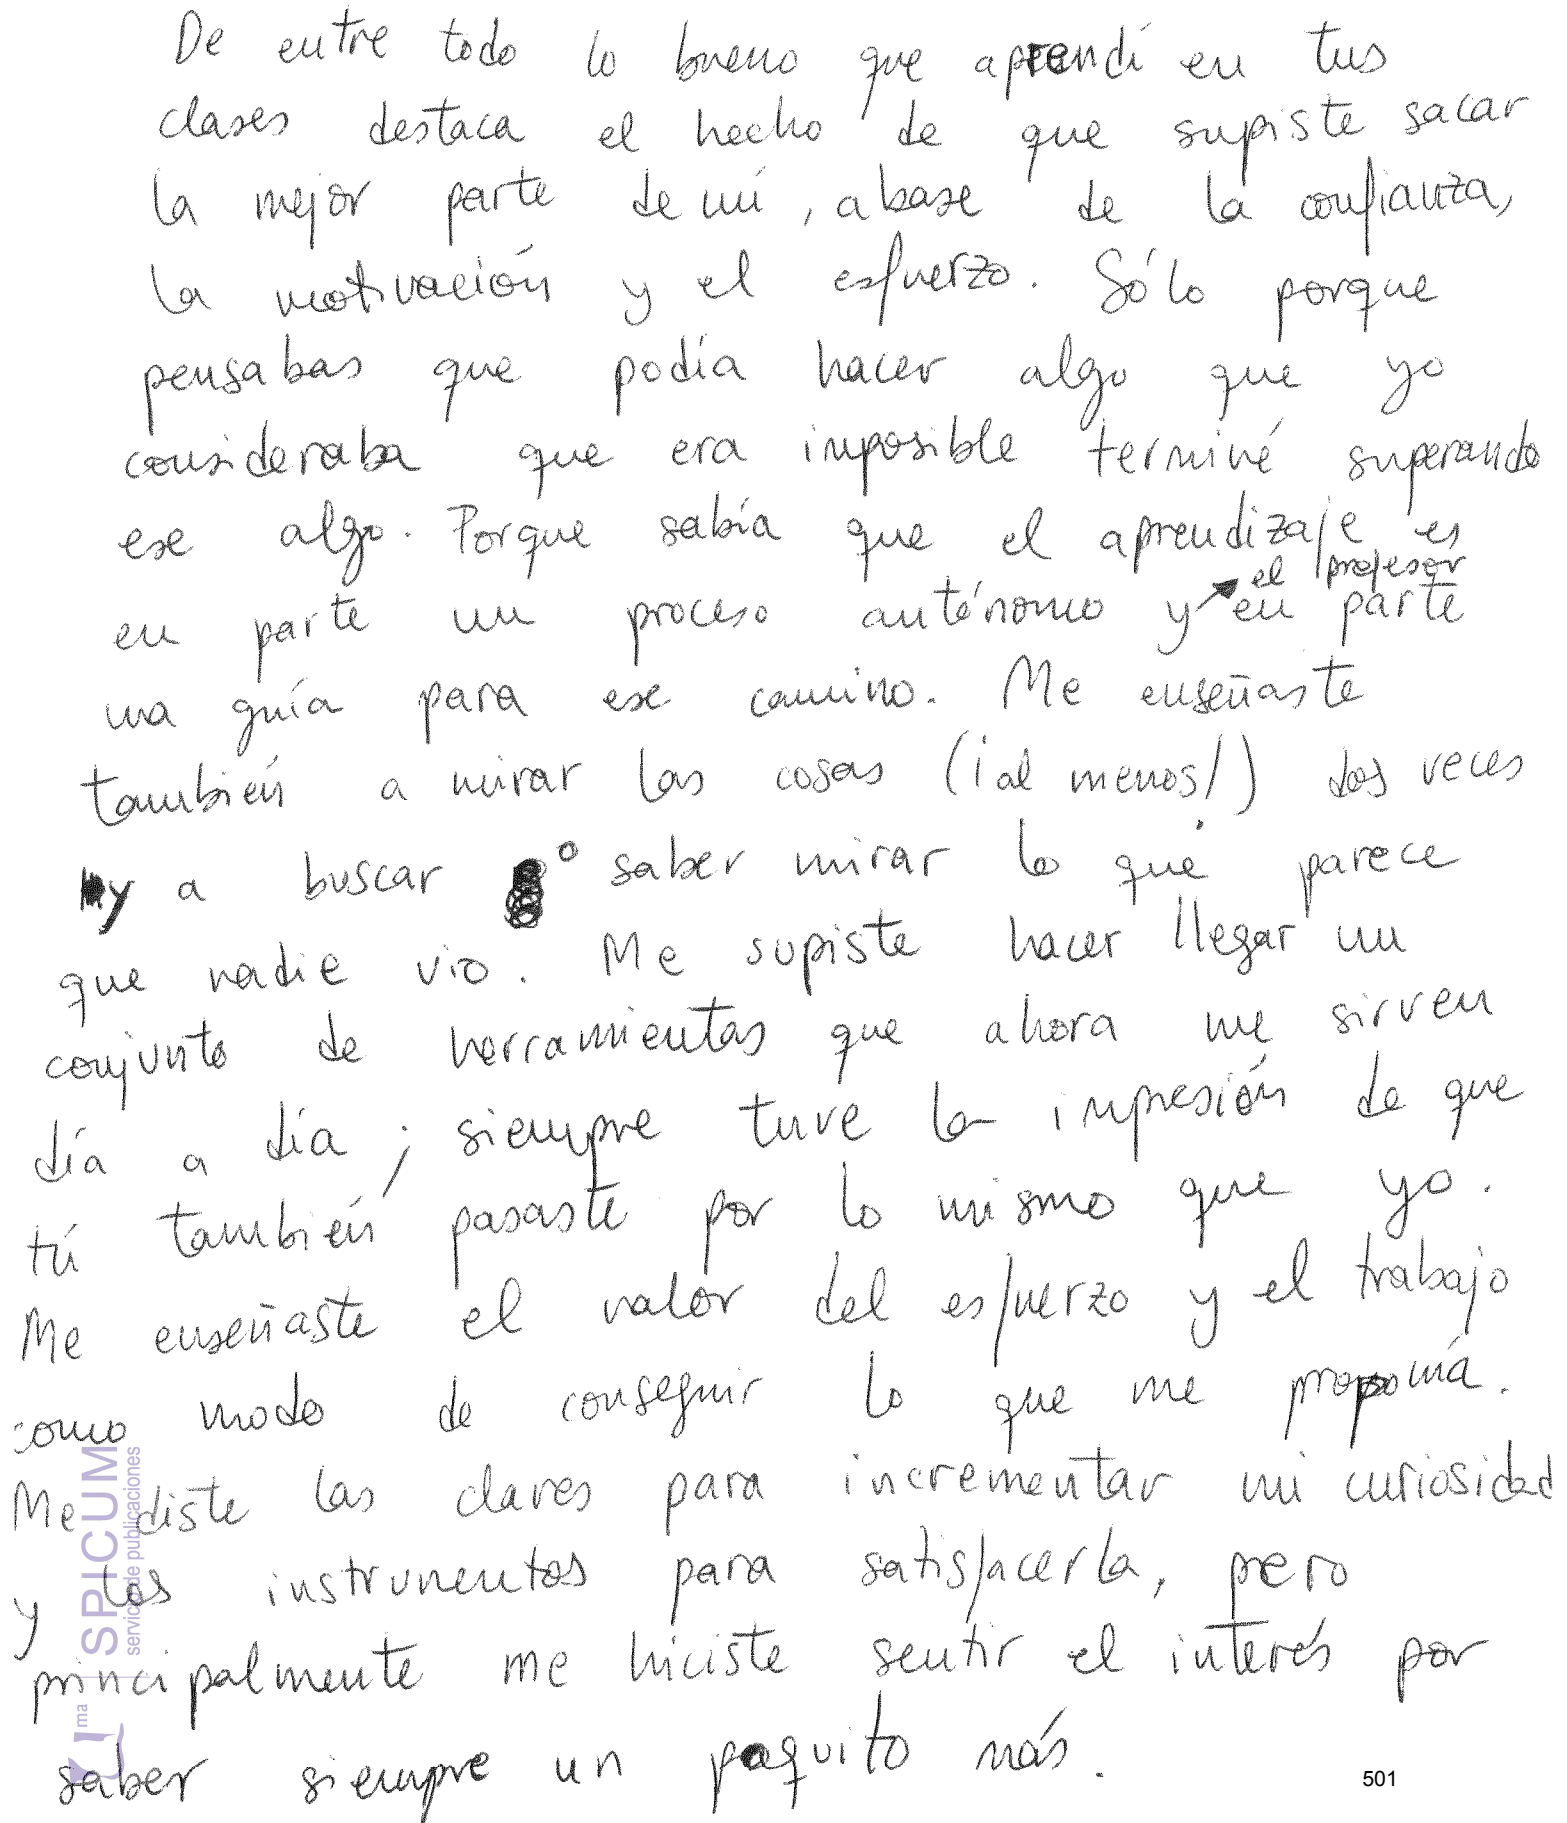 De entre todo lo bueno que aprendí en tus
clases destaca el hecho de que supiste sacar
la mejor parte de mí, a base de la confianza,
la motivación y el esfuerzo. Sólo porque
pensabas que podía hacer algo que yo
consideraba que era imposible terminé superando
ese algo. Porque sabía que el aprendizaje es
el profesor
en parte un proceso autónomo y en parte
una guía para ese camino. Me enseñaste
también a mirar las cosas (¡al menos!) dos veces
y a buscar o saber mirar lo que parece
que nadie vio. Me supiste hacer llegar un
conjunto de herramientas que ahora me sirven
día a día; siempre tuve la impresión de que
tú también pasaste por lo mismo que yo.
Me enseñaste el valor del esfuerzo y el trabajo
como modo de conseguir lo que me proponía.
Me diste las claves para incrementar mi curiosidad
y los instrumentos para satisfacerla, pero
principalmente me hiciste sentir el interés por
saber siempre un poquito más.
501
uma
SPICUM
servicio de publicaciones